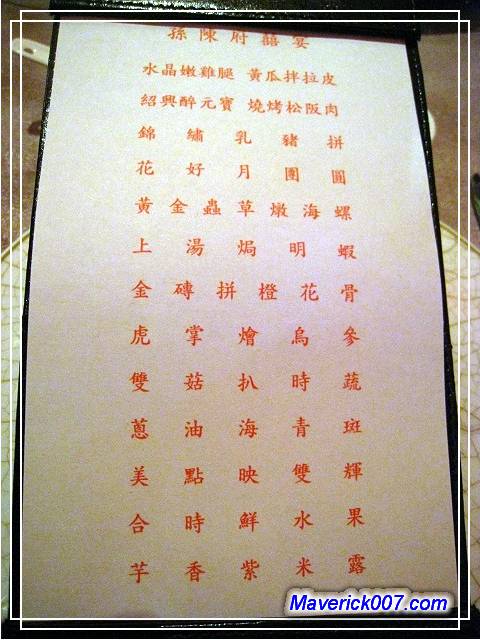 孫陳府囍宴
水晶嫩雞腿 黃瓜拌拉皮
紹興醉元寶 燒烤松阪肉
錦繡乳豬拼
花好月團圓
黃金蟲草燉海螺
上湯焗明蝦
金磚拼橙花骨
虎掌燴烏參
雙菇扒時蔬
蔥油海青斑
美點映雙輝
合時鮮水果
芋香紫米露
Maverick007.com